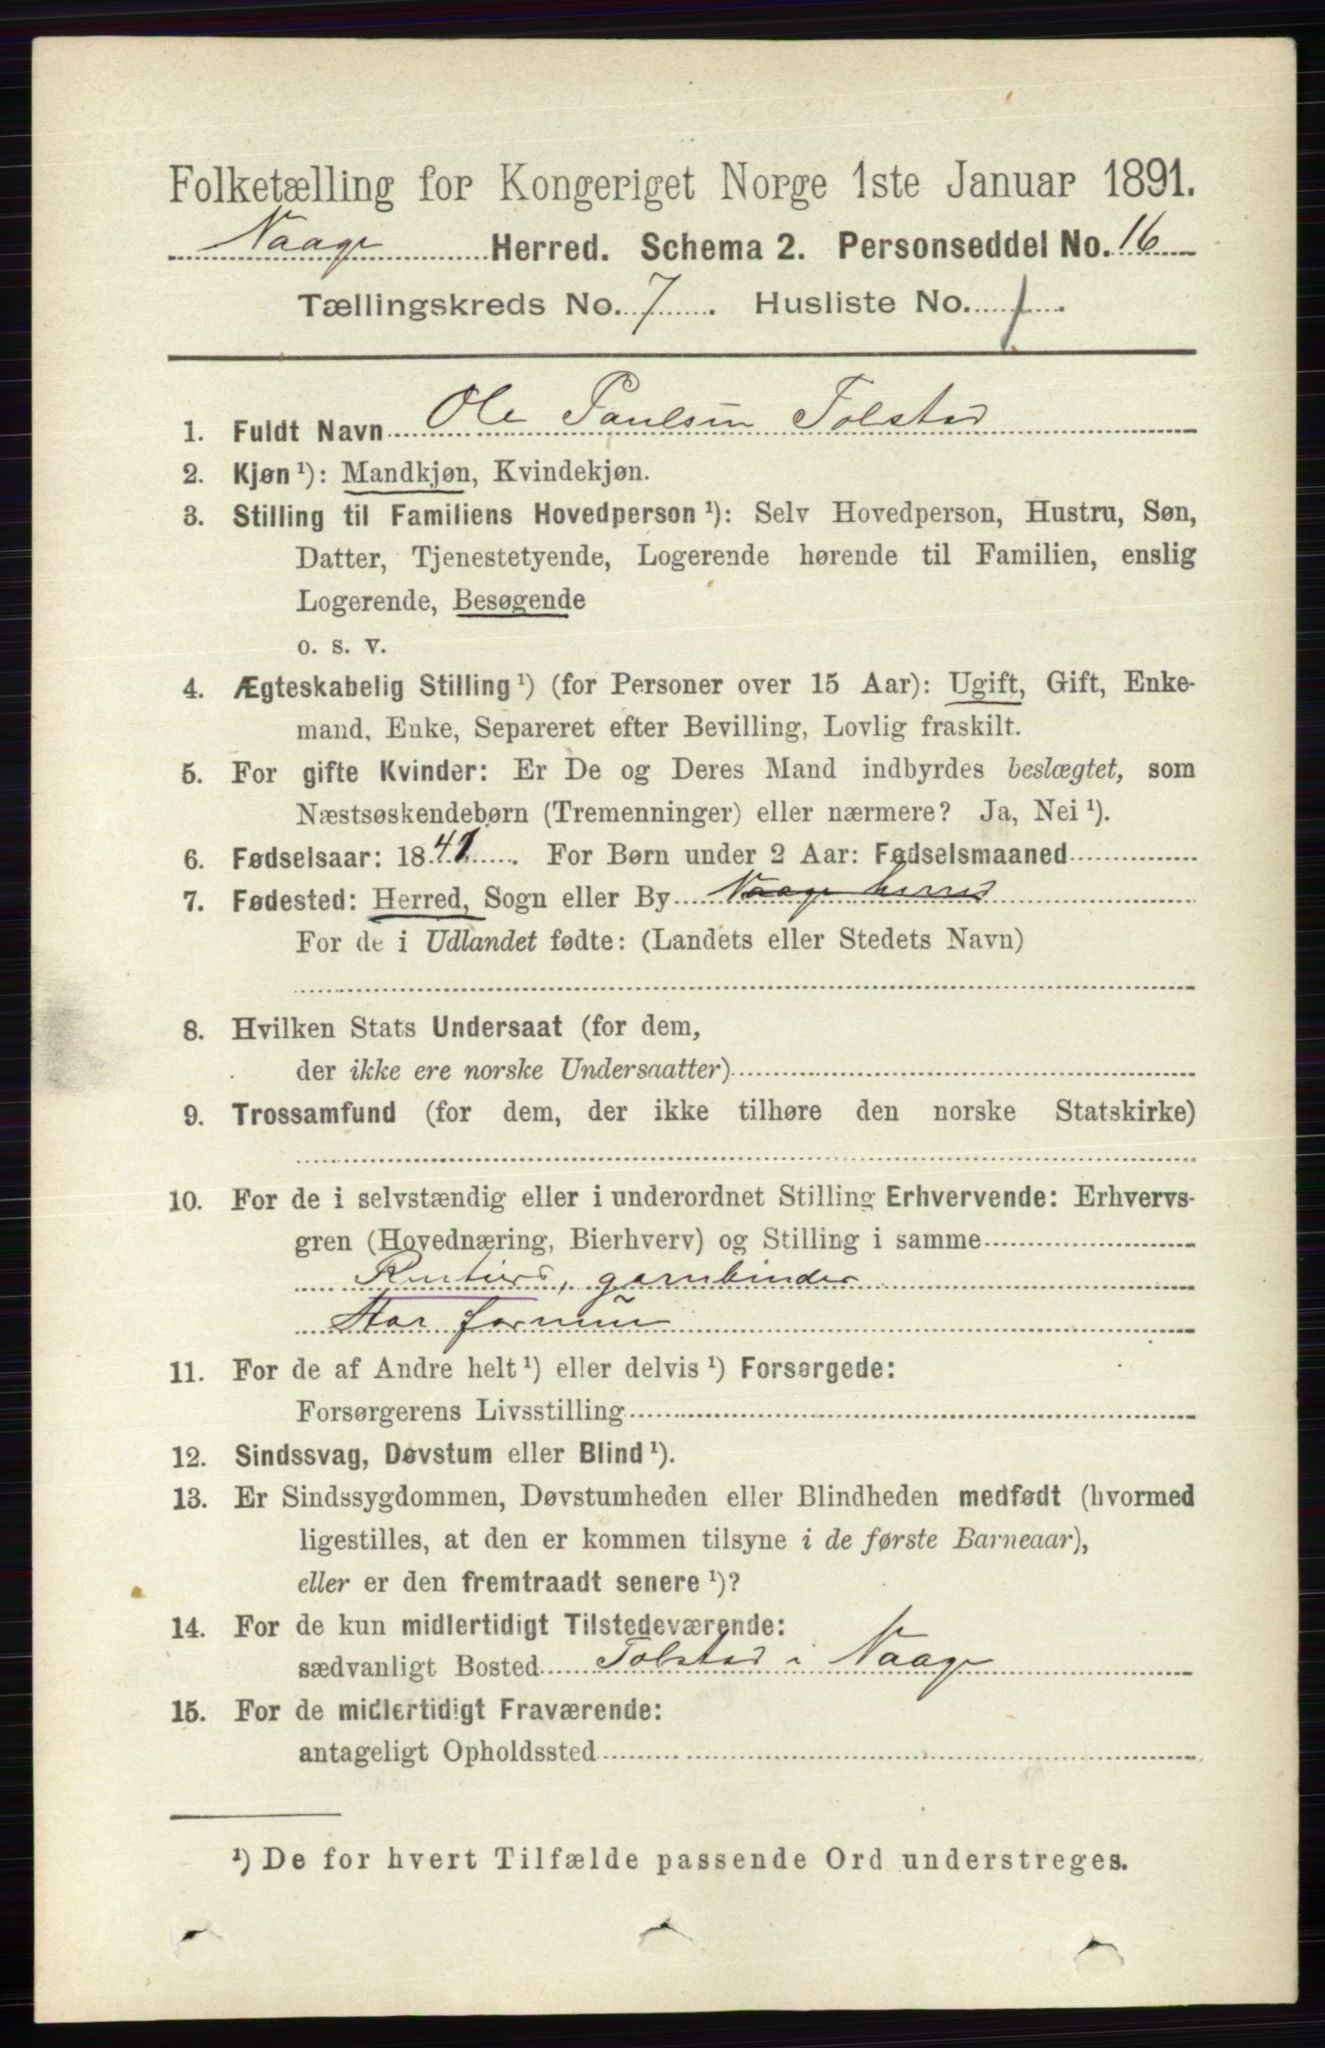 Folketælling for Kongeriget Norge 1ste Januar 1891.
Vaage Herred. Schema 2. Personseddel No. 16
Tællingskreds No. 7. Husliste No. 1.
1. Fuldt Navn Ole Paulsen Tolstad
2. Kjøn ¹): Mandkjøn, Kvindekjøn.
3. Stilling til Familiens Hovedperson ¹): Selv Hovedperson, Hustru, Søn,
Datter, Tjenestetyende, Logerende hørende til Familien, enslig
Logerende, Besøgende
o. s. v.
4. Ægteskabelig Stilling ¹) (for Personer over 15 Aar): Ugift, Gift, Enke-
mand, Enke, Separeret efter Bevilling, Lovlig fraskilt.
5. For gifte Kvinder: Er De og Deres Mand indbyrdes beslægtet, som
Næstsøskendebørn (Tremenninger) eller nærmere? Ja, Nei ¹).
6. Fødselsaar: 1841. For Børn under 2 Aar: Fødselsmaaned
7. Fødested: Herred, Sogn eller By Vaage herred
For de i Udlandet fødte: (Landets eller Stedets Navn)
8. Hvilken Stats Undersaat (for dem,
der ikke ere norske Undersaatter)
9. Trossamfund (for dem, der ikke tilhøre den norske Statskirke)
10. For de i selvstændig eller i underordnet Stilling Erhvervende: Erhvervs-
gren (Hovednæring, Bierhverv) og Stilling i samme
garnbinder
Har formue
11. For de af Andre helt ¹) eller delvis ¹) Forsørgede:
Forsørgerens Livsstilling
12. Sindssvag, Døvstum eller Blind ¹).
13. Er Sindssygdommen, Døvstumheden eller Blindheden medfødt (hvormed
ligestilles, at den er kommen tilsyne i de første Barneaar),
eller er den fremtraadt senere ¹)?
14. For de kun midlertidigt Tilstedeværende:
sædvanligt Bosted Tolstad i Vaage
15. For de midlertidigt Fraværende:
antageligt Opholdssted
¹) De for hvert Tilfælde passende Ord understreges.